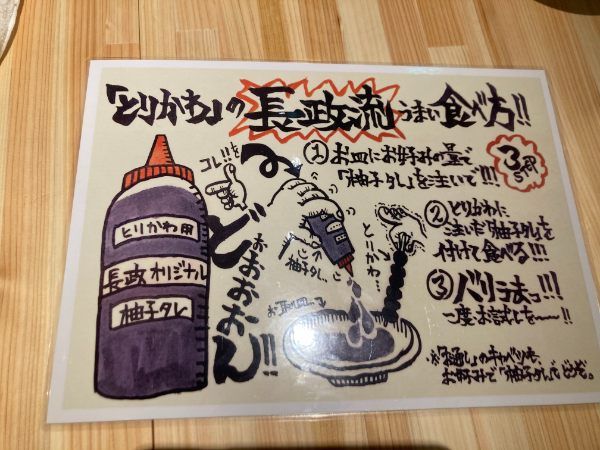 「とりかわ」の長政流うまい食べ方!!
コレ!!を
とりかわ用
長政オリジナル
柚子タレ
どぉおおおん!!
柚子タレ
お取皿
とりかわ…
①お皿にお好みの量で
「柚子タレ」を注いで!!!
②とりかわに
注いだ「柚子タレ」を
付けて食べる!!!
③バリうまっ!!!
一度お試しを〜!!
※「お通し」のキャベツも、
お好みで「柚子タレ」でどうぞ。